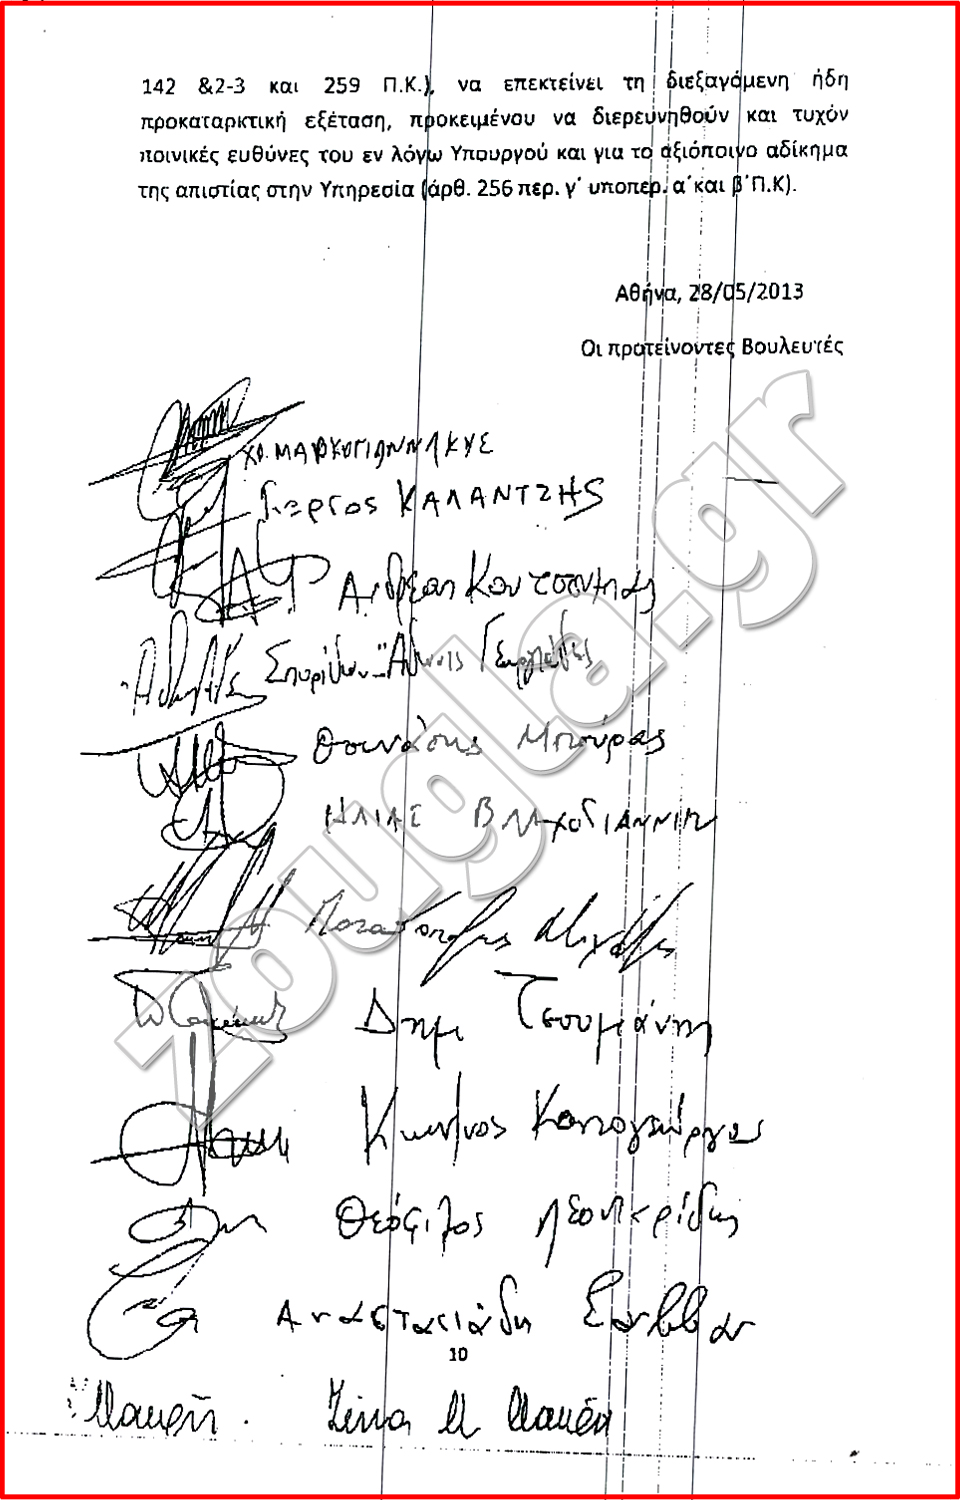 142 &2-3 και 259 Π.Κ.), να επεκτείνει τη διεξαγόμενη ήδη
προκαταρκτική εξέταση, προκειμένου να διερευνηθούν και τυχόν
ποινικές ευθύνες του εν λόγω Υπουργού και για το αξιόποινο αδίκημα
της απιστίας στην Υπηρεσία (άρθ. 256 περ. γ΄ υποπερ. α΄και β΄Π.Κ).
Αθήνα, 28/05/2013
Οι προτείνοντες Βουλευτές
ΧΡ. ΜΑΡΚΟΓΙΑΝΝΑΚΗΣ
Γιώργος ΚΑΛΑΝΤΖΗΣ
Ανδρέας Κουτσούμπας
Σπυρίδων "Άδωνις Γεωργιάδης
Θανάσης Μπούρας
ΗΛΙΑΣ ΒΛΑΧΟΓΙΑΝΝΗΣ
Δημ Τσουμάνης
Κων/νος Κοντογεώργος
Θεόφιλος Λεονταρίδης
Αναστασιάδης Σάββας
10
Ζέττα Μ Μακρή
zougla.gr